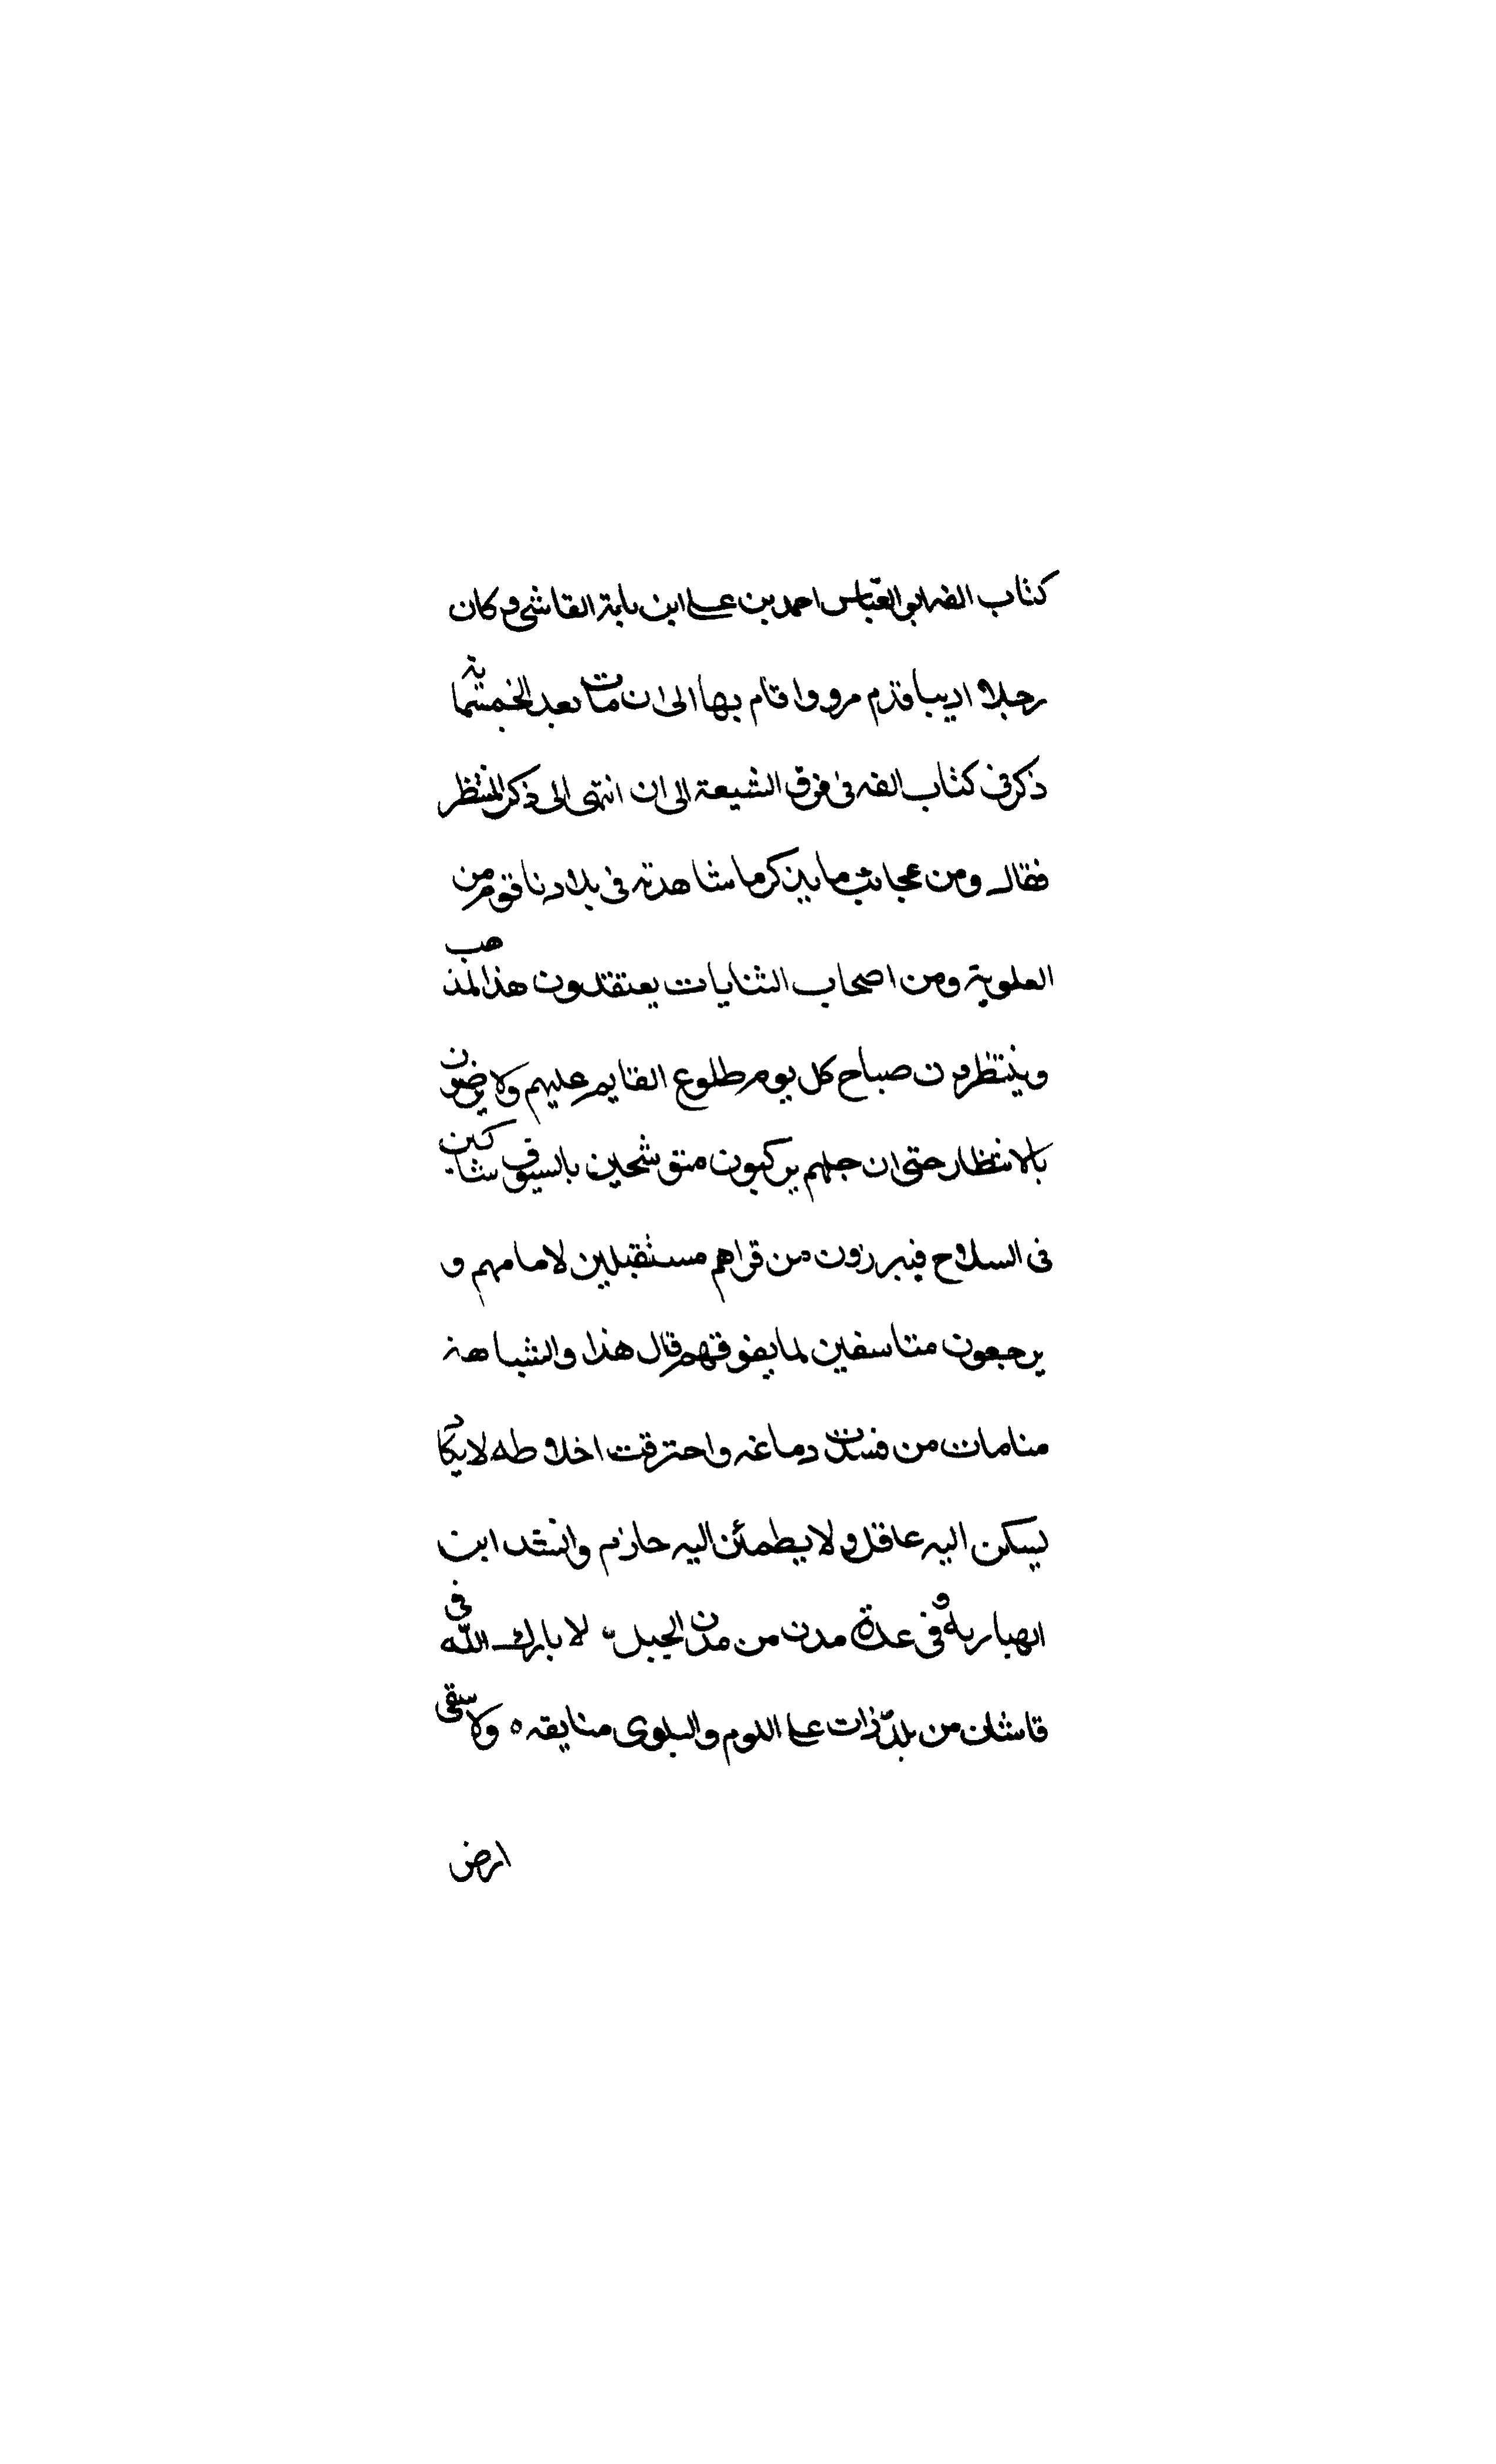 كتاب الفه ابو العباس احمد بن على ابن بابة القاشى و كان
رجلا اديبا قدم مرو واقام بها الى ان مات بعد الخمسماية
ذكر فى كتاب الفه فى فرق الشيعة الى ان انتهى الى ذكر المنتظر
فقال ومن عجائب ما يذكر ما شاهدته فى بلادنا قوم من
العلوية ومن اصحاب التنايات يعتقدون هذا المذهب
وينتظرون صباح كل يوم طلوع القايم عليهم ولا يرضون
بالانتظار حتى ان جلهم يركبون متوشحين بالسيوف شاكين
فى السلاح فيبرزون من قراهم مستقبلين لامامهم و
يرجعون متاسفين لما يفوقهم قال هذا والشباهة
منامات من فسدت دماغه واحترقت اخلاطه لا يكاد
يسكن اليه عاقل ولا يطمئن اليه حازم وانشد ابن
الهبارية فى عدة مدن من مدن الجبل لا بارك الله فى
قاشان من بلد زرت على اللوم والبلوى منايقه ه ولا سقى
ارض